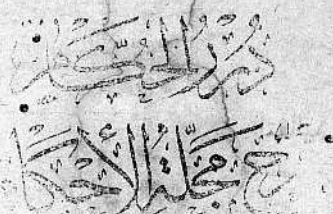 درر الحكام
شرح مجلة الأحكام